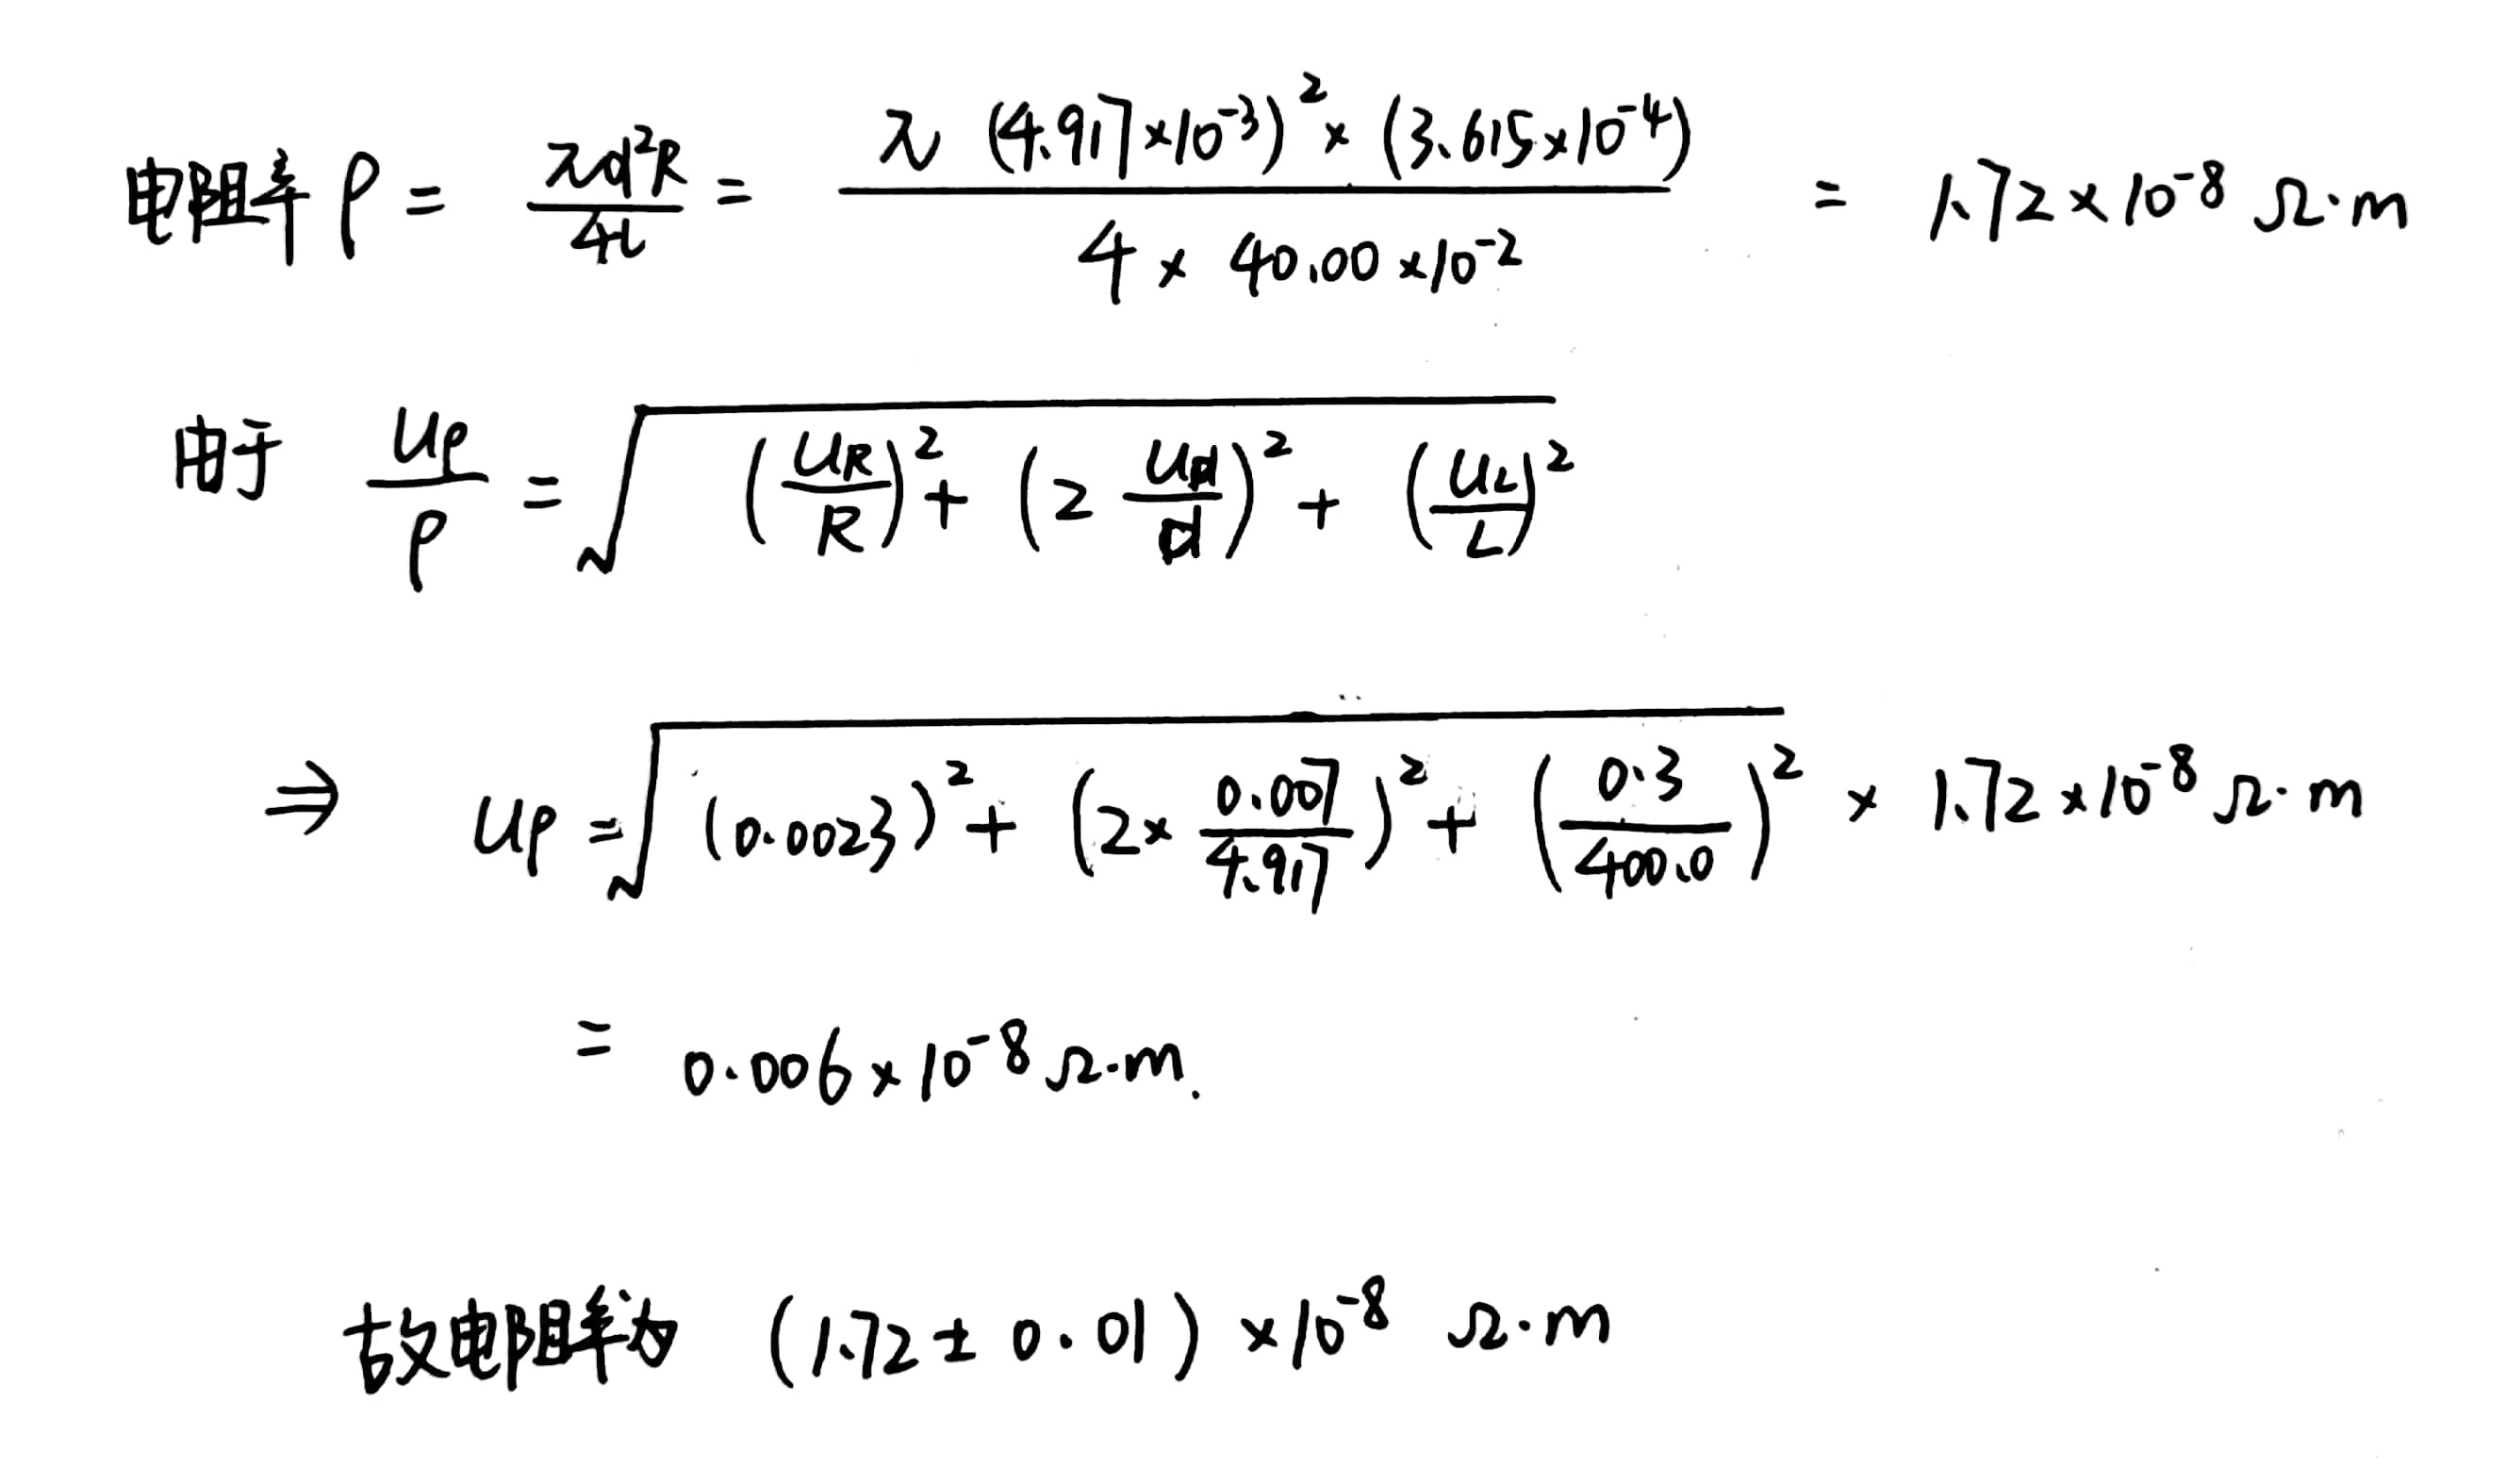 电阻率 ρ = πd²R / 4L = π (4.917×10⁻³)² × (3.615×10⁻⁴) / 4 × 40.00×10⁻² = 1.72×10⁻⁸ Ω·m
由于 uρ/ρ = √((uR/R)² + (2 ud/d)² + (uL/L)²)
⇒ uρ = √((0.0023)² + (2× 0.007/4.917)² + (0.3/400.0)²) × 1.72×10⁻⁸ Ω·m
= 0.006×10⁻⁸ Ω·m.
故电阻率为 (1.72 ± 0.01) ×10⁻⁸ Ω·m